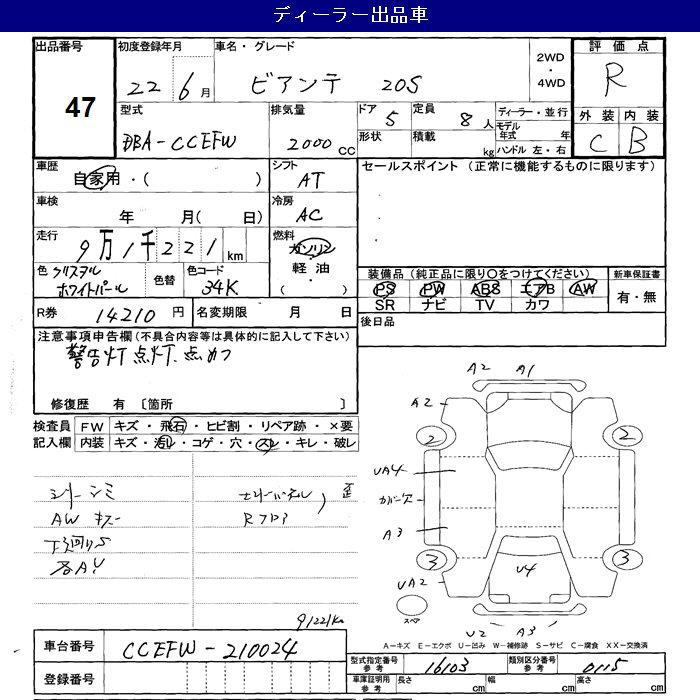 ディーラー出品車
出品番号 初度登録年月 車名・グレード 2WD ・ 4WD 評価点
47 22 6月 ビアンテ 20S R
型式 排気量 ドア 5 定員 8人 ディーラー・並行 外装 内装
DBA-CCEFW 2000cc 形状 積載 kg モデル年式 年 C B
ハンドル 左・右
車歴 シフト セールスポイント (正常に機能するものに限ります)
自家用・( ) AT
車検 冷房
年 月( 日) AC
走行 9万1千221km 燃料 ガソリン
軽油・( )
色 クリスタルホワイトパール 色替 色コード 34K
装備品(純正品に限り○をつけてください) 新車保証書
PS PW ABS エアB AW 有・無
SR ナビ TV カワ
R券 14210円 名変期限 月 日 後日品
注意事項申告欄(不具合内容等は具体的に記入して下さい)
警告灯点灯.点めつ
修復歴 有 [箇所 ]
検査員 FW キズ・飛石・ヒビ割・リペア跡・×要
記入欄 内装 キズ・汚れ・コゲ・穴・スレ・キレ・破レ
A2 A1
A2
2 2
UA4
カバー欠
A3
3 3
UA2 U4
スペア
U2 A3
AW キズー
下廻りS
各AY
R フロア
歪
91221Km
A=キズ E=エクボ U=凹み W=補修跡 S=サビ C=腐食 XX=交換済
車台番号 CCEFW-210024
型式指定番号 参考 16103 類別区分番号 参考 0115
登録番号
車庫証明用 参考 長さ cm 幅 cm 高さ cm